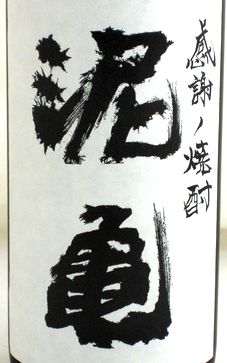 感謝ノ焼酎
泥亀